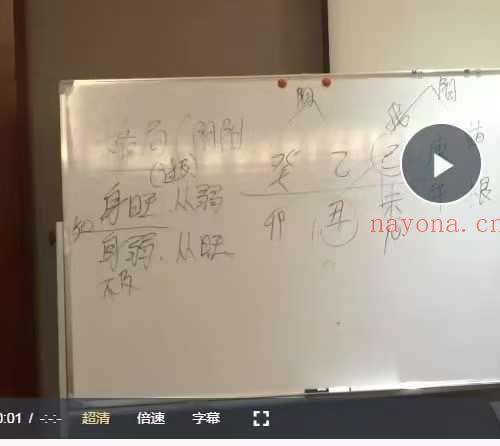 格局(阴阳
(过极)
身旺 从弱
身弱.从旺
不及
阴
阳
我
癸 乙 己 庚
卯 丑 未
nayona.cn
0:01 / -:-:- 超清 倍速 字幕